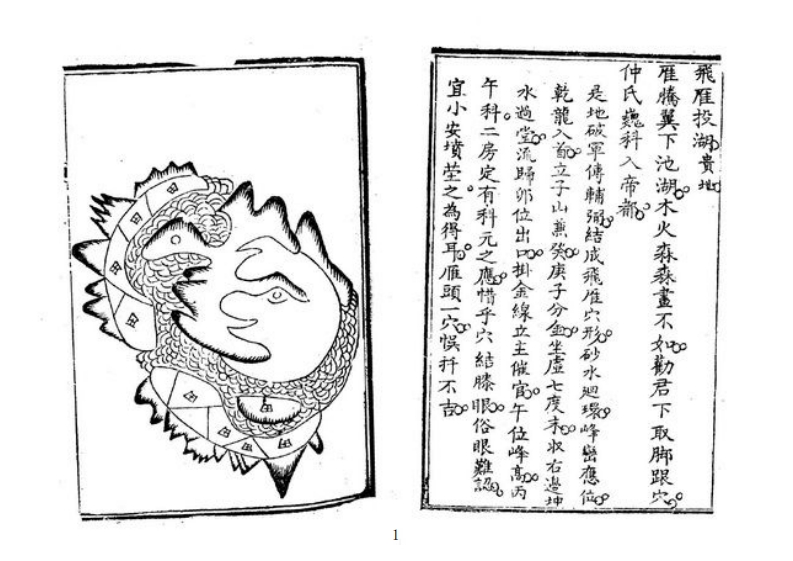 飛雁投湖貴地
雁騰翼下池湖木火森森畫不如勸君下取脚跟穴
仲氏巍科入帝都
是地破軍傳輔弼結成飛雁穴形砂水廻環峰巒應位
乾龍入首立子山兼癸庚子分金坐虛七度末收右邊坤
水過堂流歸卯位出口掛金線立主催官午位峰高丙
午科二房定有科元之應惜乎穴結膝眼俗眼難認
宜小安墳塋之為得耳雁頭一穴悞扦不吉
田
田
田
田
田
田
田
1